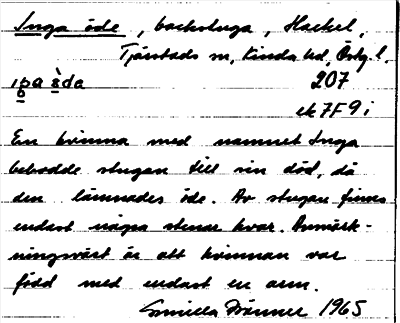 Inga öde, backstuga, Hackel,
Tjärstads sn, Kinda hd, Östg. l.
207
ek 7F 9i
En kvinna med namnet Inga
bebodde stugan till sin död, då
den lämnades öde. Av stugan finns
endast några stenar kvar. Anmärk-
ningsvärt är att kvinnan var
född med endast en arm.
Gunilla 1965